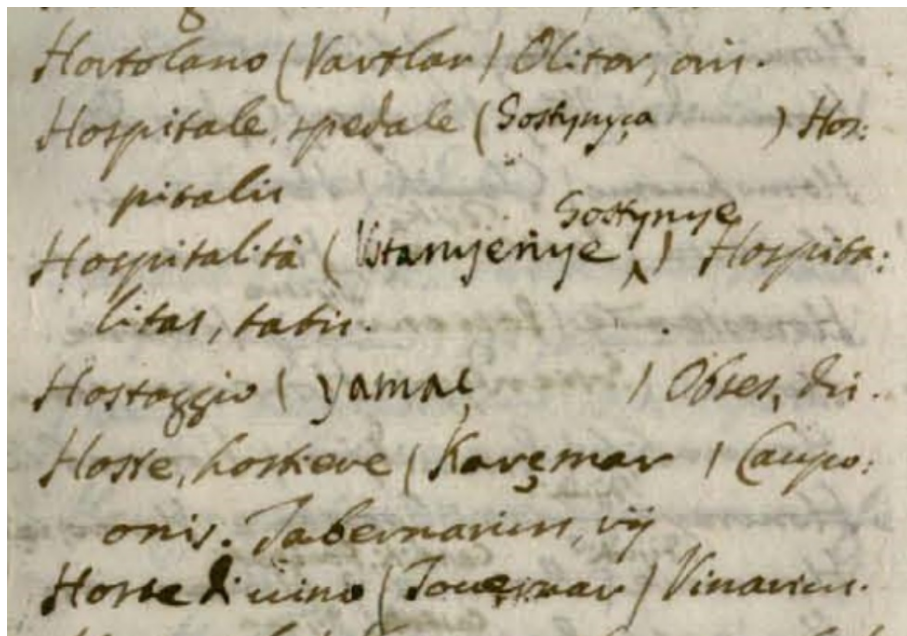 Hortolano (Vartlar) Olitor, oris.
Hospitale, spedale (Gostynyça ) Hos:
pitalis
Gostynye
Hospitalità (Vstanyenye ^) Hospita:
litas, tatis.
Hostaggio ( yamaç ) Obses, dis.
Hoste, hostiere (Karçmar ) Caupo:
onis. Tabernarius, rij
Hoste di uino ( ) Vinarius.